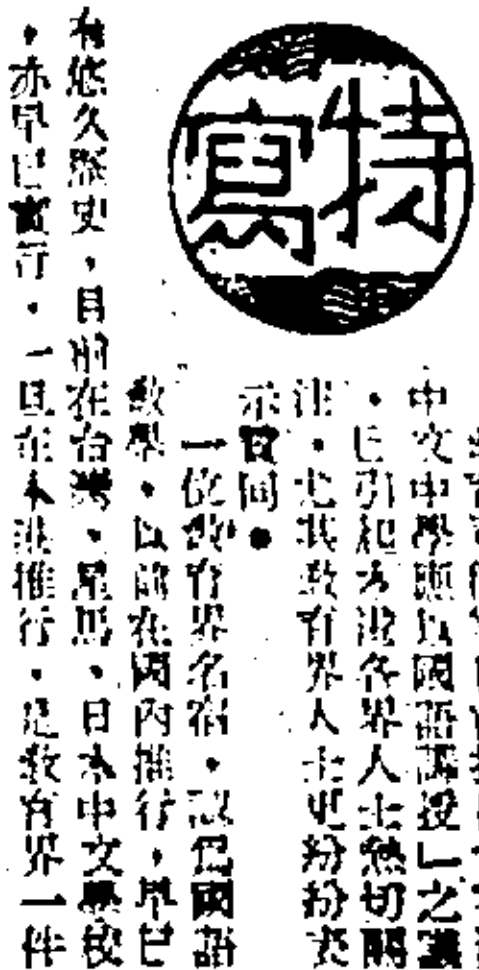 特寫
中文中學應以國語講授」之議
，已引起本港各界人士熱切關
注，尤其教育界人士更紛紛表
示贊同。
一位教育界名宿，認爲國語
教學，以前在國內推行，早已
有悠久歷史，目前在台灣、星馬、日本中文學校
，亦早已實行，一旦在本港推行，是教育界一件